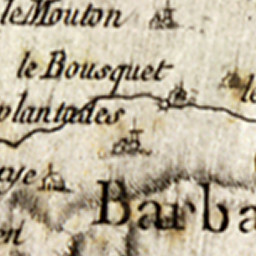 le Mouton
le Bousquet
le
plantades
aye
Barba